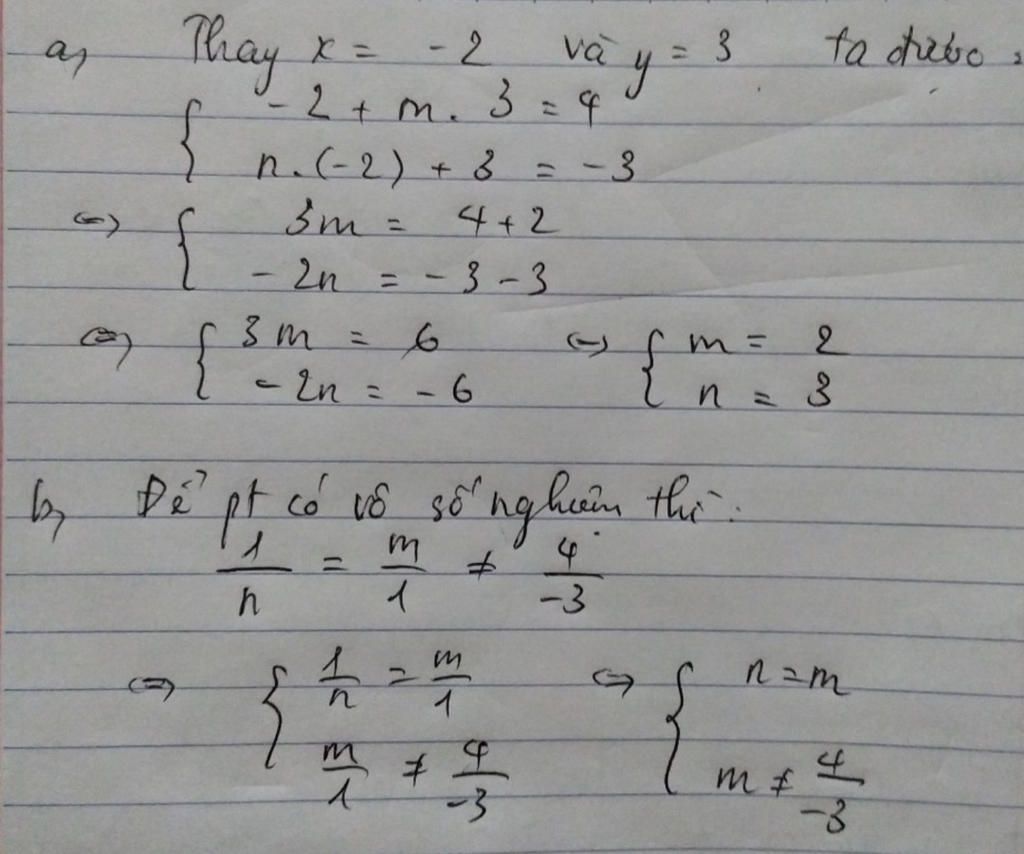 a, Thay x = -2 và y = 3 ta được:
{ -2 + m. 3 = 4
n.(-2) + 3 = -3
<=> { 3m = 4+2
-2n = -3-3
<=> { 3m = 6 <=> { m = 2
-2n = -6 n = 3
b, Để pt có vô số nghiệm thì:
1/n = m/1 ≠ 4/-3
<=> { 1/n = m/1 <=> { n = m
m/1 ≠ 4/-3 m ≠ 4/-3